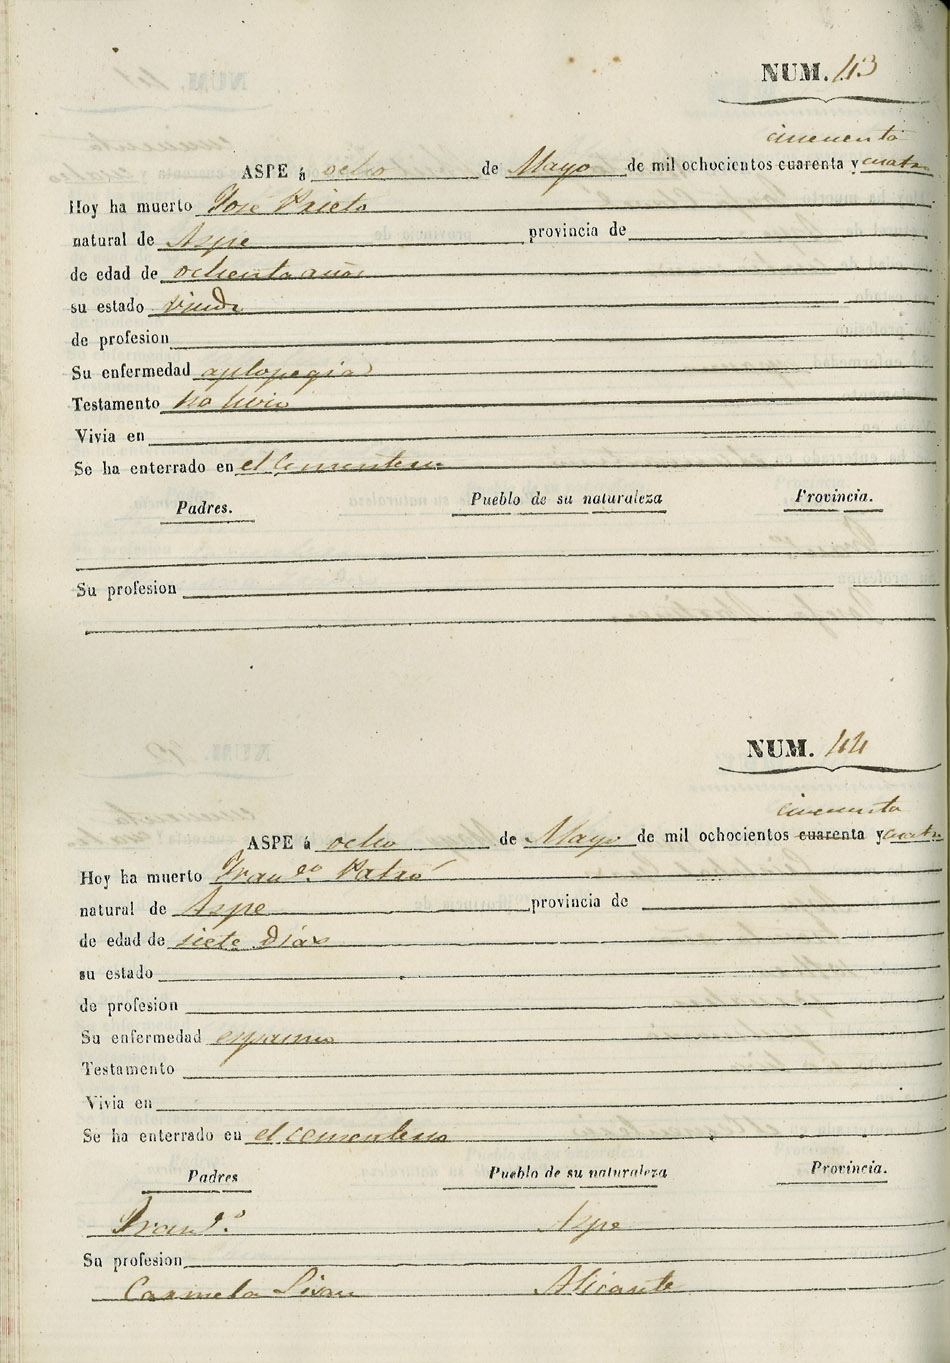 NUM. 43
cincuenta
ASPE á ocho de Mayo de mil ochocientos cuarenta y cuatro
Hoy ha muerto Jose Prieto
natural de Aspe provincia de
de edad de ochenta años
su estado viudo
de profesion
Su enfermedad aplopegia
Testamento no hizo
Vivia en
Se ha enterrado en el Cementerio
Padres. Pueblo de su naturaleza Provincia.
Su profesion
NUM. 44
cincuenta
ASPE á ocho de Mayo de mil ochocientos cuarenta y cuatro
Hoy ha muerto Fran.co
natural de Aspe provincia de
de edad de siete dias
su estado
de profesion
Su enfermedad espasmo
Testamento
Vivia en
Se ha enterrado en el cementerio
Padres Pueblo de su naturaleza Provincia.
Fran.co Aspe
Su profesion
Carmela Alicante